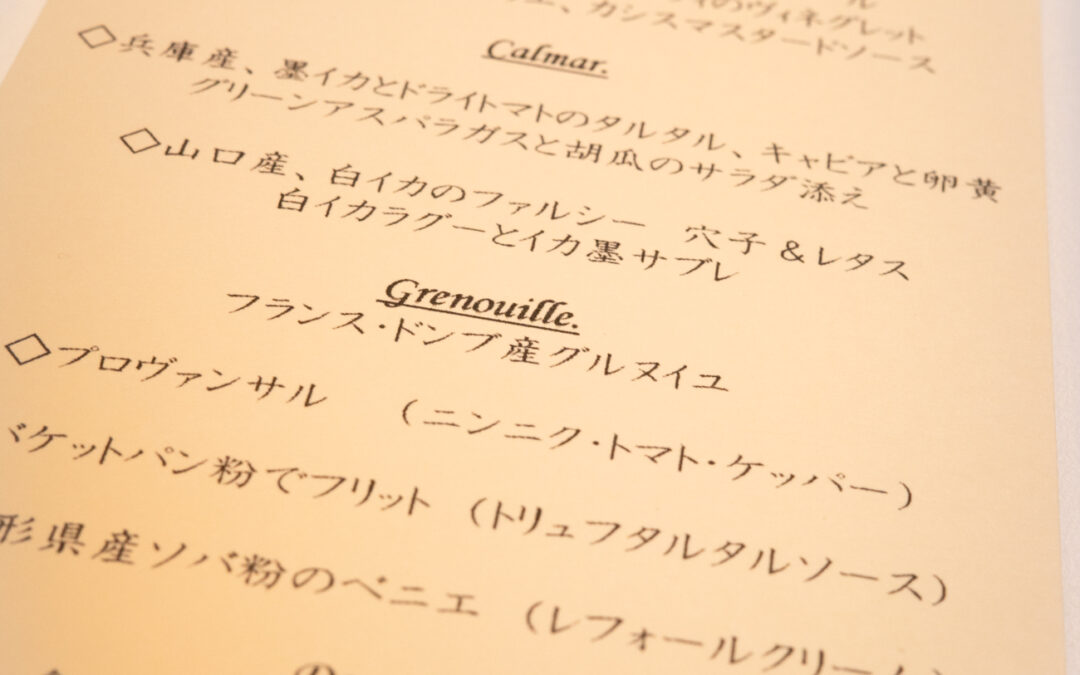 ル
のヴィネグレット
、カシスマスタードソース
Calmar.
◇兵庫産、墨イカとドライトマトのタルタル、キャビアと卵黄
グリーンアスパラガスと胡瓜のサラダ添え
◇山口産、白イカのファルシー 穴子&レタス
白イカラグーとイカ墨サブレ
Grenouille.
フランス・ドンブ産グルヌイユ
◇プロヴァンサル (ニンニク・トマト・ケッパー)
バケットパン粉でフリット (トリュフタルタルソース)
形県産ソバ粉のベニエ (レフォールクリーム)
の